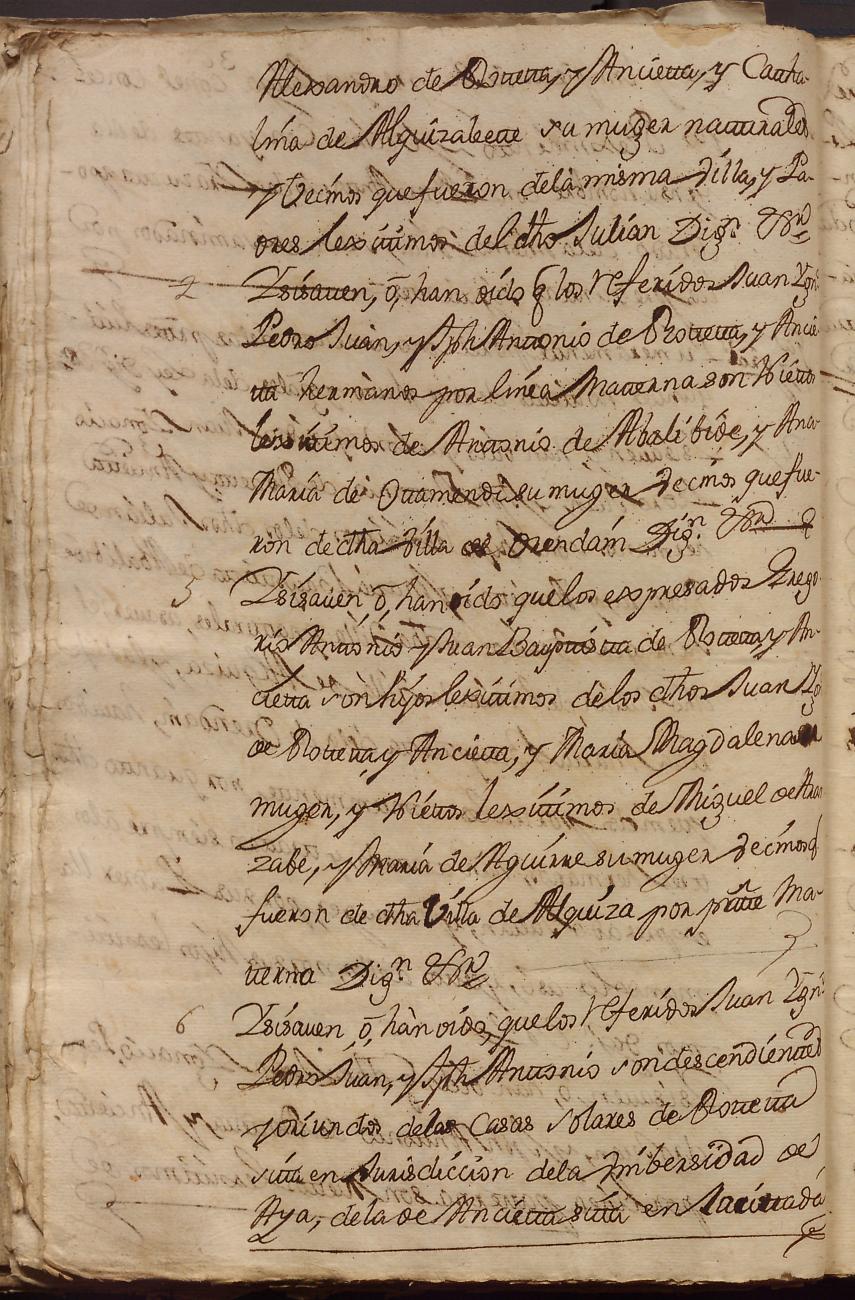 Alexandro de Rotetta, y Ancietta, y Catha-
lina de Alquizalette su muger natturales
y Vecinos que fueron dela misma Villa, y Pa-
dres lexittimos del dho Julián Dign &ra
4 Ysisaven, ó, han oido q los referidos Juan Ygn.o
Pedro Juan, y Jph Antonio de Rottetta, y Ancie
tta hermanos por linea Matterna son Niettos
lexittimos de Antonio de Abalibide, y Ana
Maria de Otamendi su muger Vecinos que fue-
ron de dha Villa de Orendain Dign. &ra
5 Ysisaven ó, han oido que los expresados Grego
rio Antonio y Juan Bauptistta de Rottetta, y An-
cietta son hijos lexittimos de los dhos Juan Yg.o
de Rottetta y Ancietta, y Maria Magdalena su
muger, y Niettos lexittimos de Miguel de
zabe, y Maria de Aguirre su muger Vecinos q
fueron de dha Villa de Alquiza por partte Ma-
tterna Dign &ra
6 Ysisaven, ó, han oido, que los referidos Juan Ygn.o
Pedro Juan, y Jph Antonio son descendienttes
y oriundos delas Casas solares de Rottetta
sitta en Jurisdiccion dela Unibersidad de
Aya, dela de Ancietta sitta en la cittada